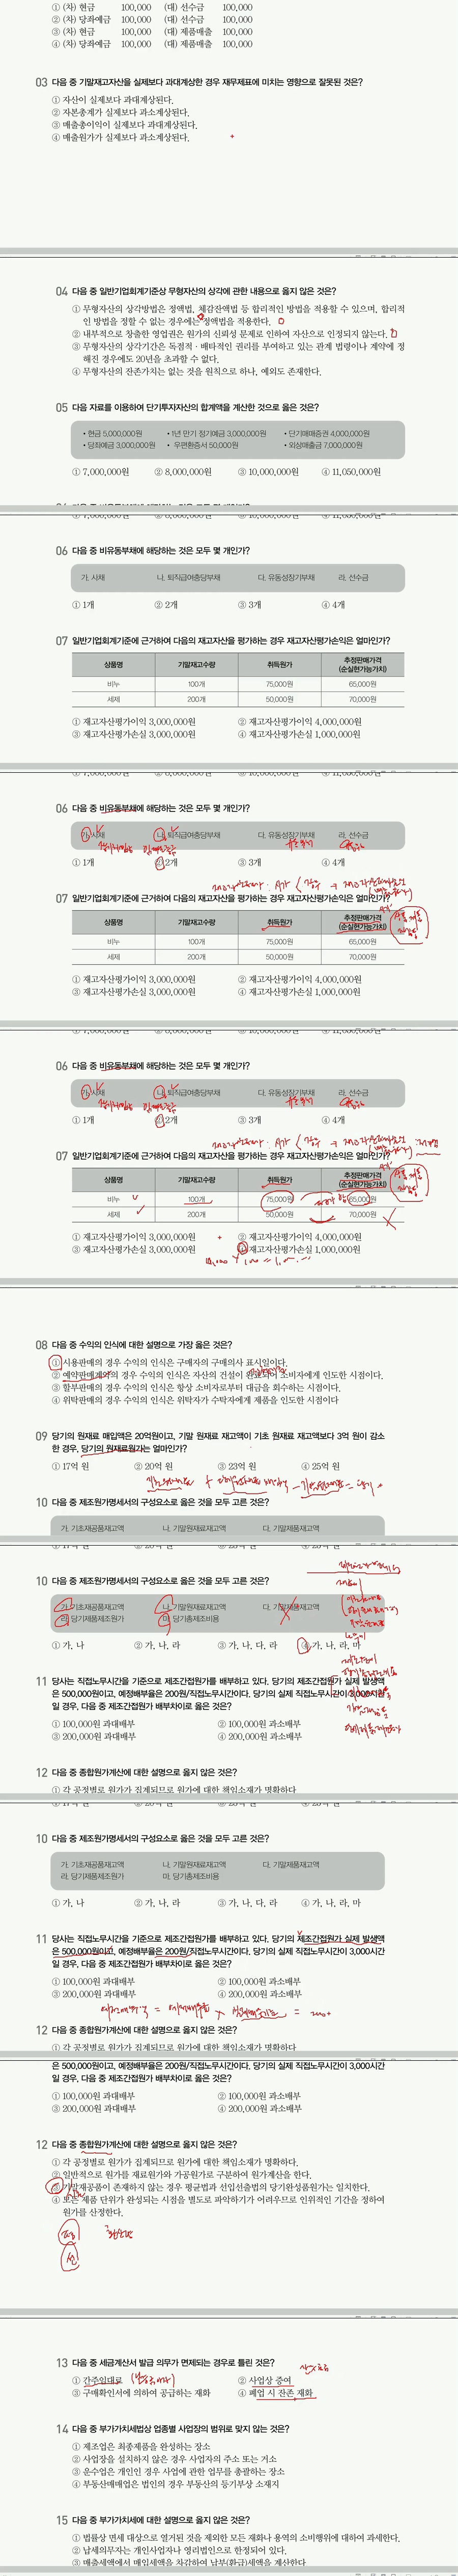 ① (차) 현금 100,000 (대) 선수금 100,000
② (차) 당좌예금 100,000 (대) 선수금 100,000
③ (차) 현금 100,000 (대) 제품매출 100,000
④ (차) 당좌예금 100,000 (대) 제품매출 100,000
03 다음 중 기말재고자산을 실제보다 과대계상한 경우 재무제표에 미치는 영향으로 잘못된 것은?
① 자산이 실제보다 과대계상된다.
② 자본총계가 실제보다 과소계상된다.
③ 매출총이익이 실제보다 과대계상된다.
④ 매출원가가 실제보다 과소계상된다.
04 다음 중 일반기업회계기준상 무형자산의 상각에 관한 내용으로 옳지 않은 것은?
① 무형자산의 상각방법은 정액법, 체감잔액법 등 합리적인 방법을 적용할 수 있으며, 합리적
인 방법을 정할 수 없는 경우에는 정액법을 적용한다.
② 내부적으로 창출한 영업권은 원가의 신뢰성 문제로 인하여 자산으로 인정되지 않는다.
③ 무형자산의 상각기간은 독점적·배타적인 권리를 부여하고 있는 관계 법령이나 계약에 정
해진 경우에도 20년을 초과할 수 없다.
④ 무형자산의 잔존가치는 없는 것을 원칙으로 하나, 예외도 존재한다.
05 다음 자료를 이용하여 단기투자자산의 합계액을 계산한 것으로 옳은 것은?
• 현금 5,000,000원 • 1년 만기 정기예금 3,000,000원 • 단기매매증권 4,000,000원
• 당좌예금 3,000,000원 • 우편환증서 50,000원 • 외상매출금 7,000,000원
① 7,000,000원 ② 8,000,000원 ③ 10,000,000원 ④ 11,050,000원
① 7,000,000원 ② 8,000,000원 ③ 10,000,000원 ④ 11,050,000원
06 다음 중 비유동부채에 해당하는 것은 모두 몇 개인가?
가. 사채 나. 퇴직급여충당부채 다. 유동성장기부채 라. 선수금
① 1개 ② 2개 ③ 3개 ④ 4개
07 일반기업회계기준에 근거하여 다음의 재고자산을 평가하는 경우 재고자산평가손익은 얼마인가?
상품명 기말재고수량 취득원가 추정판매가격
(순실현가능가치)
비누 100개 75,000원 65,000원
세제 200개 50,000원 70,000원
① 재고자산평가이익 3,000,000원 ② 재고자산평가이익 4,000,000원
③ 재고자산평가손실 3,000,000원 ④ 재고자산평가손실 1,000,000원
① 7,000,000원 ② 8,000,000원 ③ 10,000,000원 ④ 11,050,000원
06 다음 중 비유동부채에 해당하는 것은 모두 몇 개인가?
가. 사채 나. 퇴직급여충당부채 다. 유동성장기부채 라. 선수금
① 1개 ② 2개 ③ 3개 ④ 4개
07 일반기업회계기준에 근거하여 다음의 재고자산을 평가하는 경우 재고자산평가손익은 얼마인가?
상품명 기말재고수량 취득원가 추정판매가격
(순실현가능가치)
비누 100개 75,000원 65,000원
세제 200개 50,000원 70,000원
① 재고자산평가이익 3,000,000원 ② 재고자산평가이익 4,000,000원
③ 재고자산평가손실 3,000,000원 ④ 재고자산평가손실 1,000,000원
① 7,000,000원 ② 8,000,000원 ③ 10,000,000원 ④ 11,050,000원
06 다음 중 비유동부채에 해당하는 것은 모두 몇 개인가?
가. 사채 나. 퇴직급여충당부채 다. 유동성장기부채 라. 선수금
① 1개 ② 2개 ③ 3개 ④ 4개
07 일반기업회계기준에 근거하여 다음의 재고자산을 평가하는 경우 재고자산평가손익은 얼마인가?
상품명 기말재고수량 취득원가 추정판매가격
(순실현가능가치)
비누 100개 75,000원 65,000원
세제 200개 50,000원 70,000원
① 재고자산평가이익 3,000,000원 ② 재고자산평가이익 4,000,000원
③ 재고자산평가손실 3,000,000원 ④ 재고자산평가손실 1,000,000원
08 다음 중 수익의 인식에 대한 설명으로 가장 옳은 것은?
① 시용판매의 경우 수익의 인식은 구매자의 구매의사 표시일이다.
② 예약판매계약의 경우 수익의 인식은 자산의 건설이 완료되어 소비자에게 인도한 시점이다.
③ 할부판매의 경우 수익의 인식은 항상 소비자로부터 대금을 회수하는 시점이다.
④ 위탁판매의 경우 수익의 인식은 위탁자가 수탁자에게 제품을 인도한 시점이다
09 당기의 원재료 매입액은 20억원이고, 기말 원재료 재고액이 기초 원재료 재고액보다 3억 원이 감소
한 경우, 당기의 원재료원가는 얼마인가?
① 17억 원 ② 20억 원 ③ 23억 원 ④ 25억 원
10 다음 중 제조원가명세서의 구성요소로 옳은 것을 모두 고른 것은?
가. 기초재공품재고액 나. 기말원재료재고액 다. 기말제품재고액
① 17억 원 ② 20억 원 ③ 23억 원 ④ 25억 원
10 다음 중 제조원가명세서의 구성요소로 옳은 것을 모두 고른 것은?
가. 기초재공품재고액 나. 기말원재료재고액 다. 기말제품재고액
라. 당기제품제조원가 마. 당기총제조비용
① 가, 나 ② 가, 나, 라 ③ 가, 나, 다, 라 ④ 가, 나, 라, 마
11 당사는 직접노무시간을 기준으로 제조간접원가를 배부하고 있다. 당기의 제조간접원가 실제 발생액
은 500,000원이고, 예정배부율은 200원/직접노무시간이다. 당기의 실제 직접노무시간이 3,000시간
일 경우, 다음 중 제조간접원가 배부차이로 옳은 것은?
① 100,000원 과대배부 ② 100,000원 과소배부
③ 200,000원 과대배부 ④ 200,000원 과소배부
12 다음 중 종합원가계산에 대한 설명으로 옳지 않은 것은?
① 각 공정별로 원가가 집계되므로 원가에 대한 책임소재가 명확하다
① 17억 원 ② 20억 원 ③ 23억 원 ④ 25억 원
10 다음 중 제조원가명세서의 구성요소로 옳은 것을 모두 고른 것은?
가. 기초재공품재고액 나. 기말원재료재고액 다. 기말제품재고액
라. 당기제품제조원가 마. 당기총제조비용
① 가, 나 ② 가, 나, 라 ③ 가, 나, 다, 라 ④ 가, 나, 라, 마
11 당사는 직접노무시간을 기준으로 제조간접원가를 배부하고 있다. 당기의 제조간접원가 실제 발생액
은 500,000원이고, 예정배부율은 200원/직접노무시간이다. 당기의 실제 직접노무시간이 3,000시간
일 경우, 다음 중 제조간접원가 배부차이로 옳은 것은?
① 100,000원 과대배부 ② 100,000원 과소배부
③ 200,000원 과대배부 ④ 200,000원 과소배부
12 다음 중 종합원가계산에 대한 설명으로 옳지 않은 것은?
① 각 공정별로 원가가 집계되므로 원가에 대한 책임소재가 명확하다
은 500,000원이고, 예정배부율은 200원/직접노무시간이다. 당기의 실제 직접노무시간이 3,000시간
일 경우, 다음 중 제조간접원가 배부차이로 옳은 것은?
① 100,000원 과대배부 ② 100,000원 과소배부
③ 200,000원 과대배부 ④ 200,000원 과소배부
12 다음 중 종합원가계산에 대한 설명으로 옳지 않은 것은?
① 각 공정별로 원가가 집계되므로 원가에 대한 책임소재가 명확하다.
② 일반적으로 원가를 재료원가와 가공원가로 구분하여 원가계산을 한다.
③ 기말재공품이 존재하지 않는 경우 평균법과 선입선출법의 당기완성품원가는 일치한다.
④ 모든 제품 단위가 완성되는 시점을 별도로 파악하기가 어려우므로 인위적인 기간을 정하여
원가를 산정한다.
13 다음 중 세금계산서 발급 의무가 면제되는 경우로 틀린 것은?
① 간주임대료 ② 사업상 증여
③ 구매확인서에 의하여 공급하는 재화 ④ 폐업 시 잔존 재화
14 다음 중 부가가치세법상 업종별 사업장의 범위로 맞지 않는 것은?
① 제조업은 최종제품을 완성하는 장소
② 사업장을 설치하지 않은 경우 사업자의 주소 또는 거소
③ 운수업은 개인인 경우 사업에 관한 업무를 총괄하는 장소
④ 부동산매매업은 법인의 경우 부동산의 등기부상 소재지
15 다음 중 부가가치세에 대한 설명으로 옳지 않은 것은?
① 법률상 면세 대상으로 열거된 것을 제외한 모든 재화나 용역의 소비행위에 대하여 과세한다.
② 납세의무자는 개인사업자나 영리법인으로 한정되어 있다.
③ 매출세액에서 매입세액을 차감하여 납부(환급)세액을 계산한다